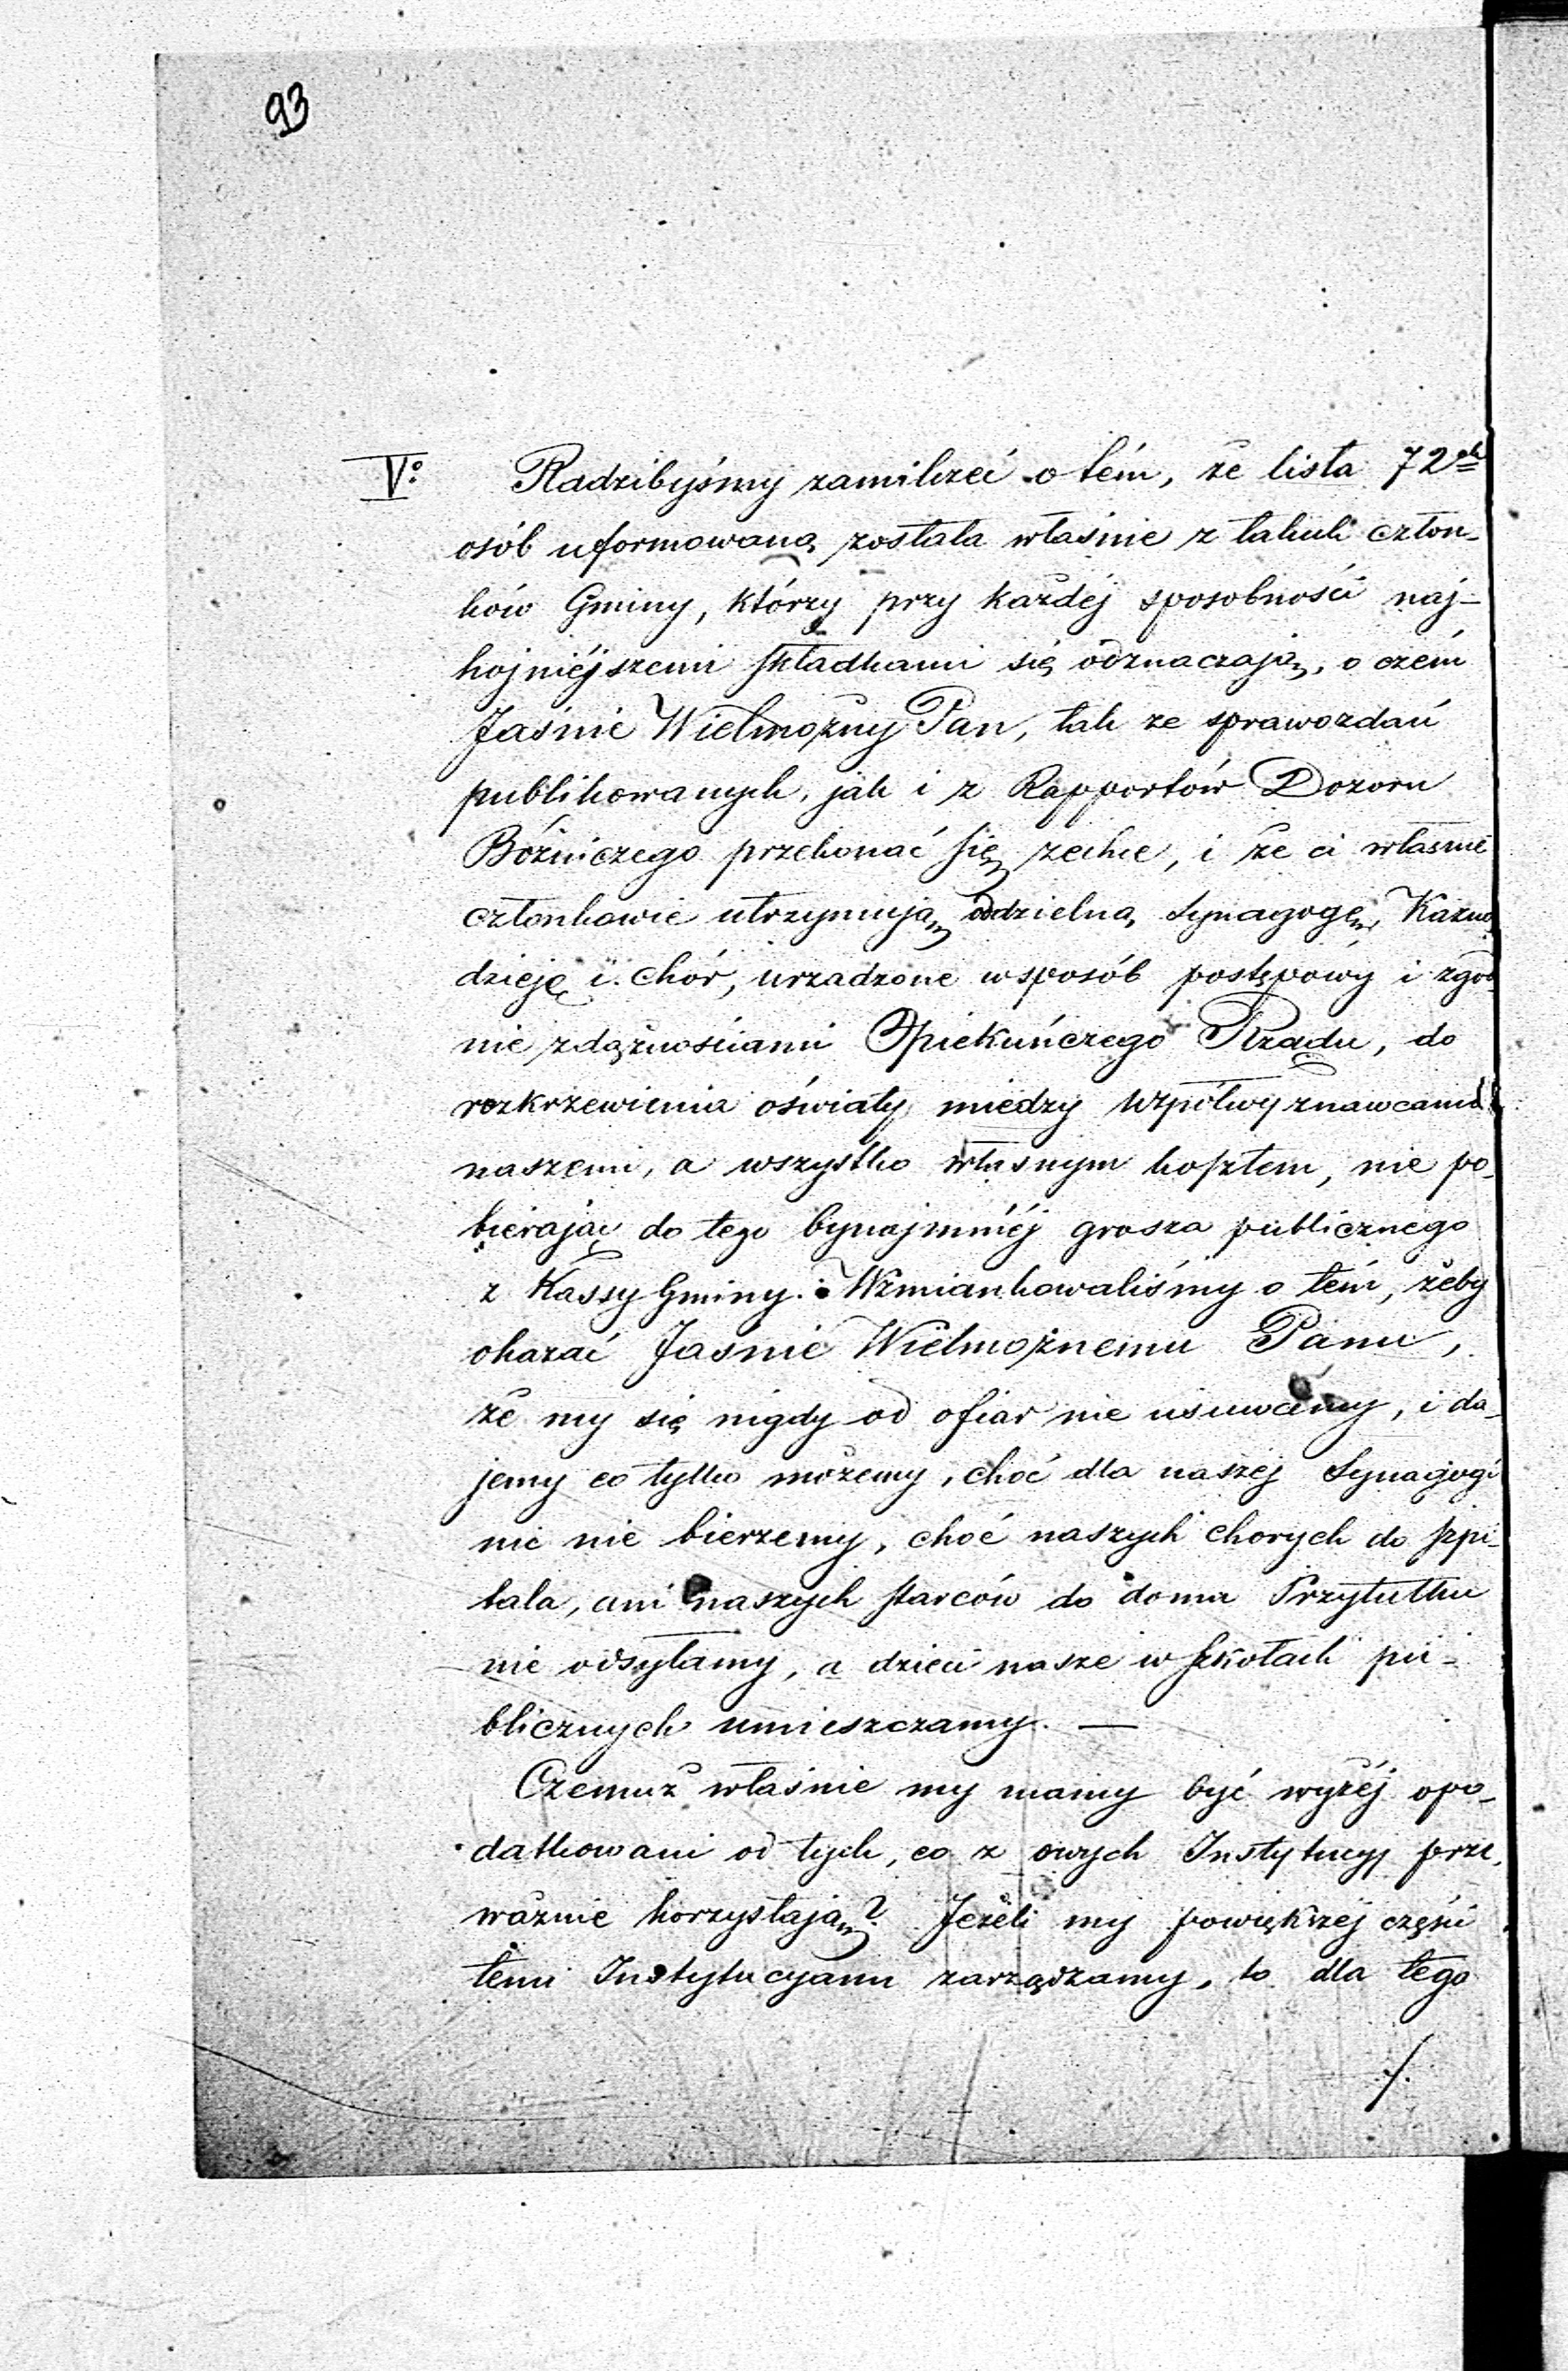 93
V° Radzibyśmy zamilczeć o tém, że lista 72ch
osób uformowaną została właśnie z takich człon-
ków Gminy, którzy przy każdéj sposobności naj-
hojniéjszemi składkami się odznaczają, o czém
Jaśnie Wielmożny Pan, tak ze sprawozdań
publikowanych, jak i z Rapportów Dozoru
Bóżniczego przekonać się zechce, i że ci właśnie
członkowie utrzymują oddzielną Synagogę, Kazno-
dzieję i chór, urządzone w sposób postępowy i zgod-
nie z dążnościami Opiekuńczego Rządu, do
rozkrzewienia oświaty między współwyznawcami
naszemi, a wszystko własnym kosztem, nie po-
bierając do tego bynajmniéj grosza publicznego
z Kassy Gminy. Wzmiankowaliśmy o tém, żeby
okazać Jaśnie Wielmożnemu Panu,
że my się nigdy od ofiar nie usuwamy, i da-
jemy co tylko możemy, choć dla naszéj Synagogi
nic nie bierzemy, choć naszych chorych do szpi-
tala, ani naszych starców do domu Przytułku
nie odsyłamy, a dzieci nasze w szkołach pu-
blicznych umieszczamy. —
Czemuż właśnie my mamy być wyżéj opo-
datkowani od tych, co z owych Instytucyj prze-
ważnie korzystają? Jeżeli my powiększéj części
temi Instytucyami zarządzamy, to dla tego
./.